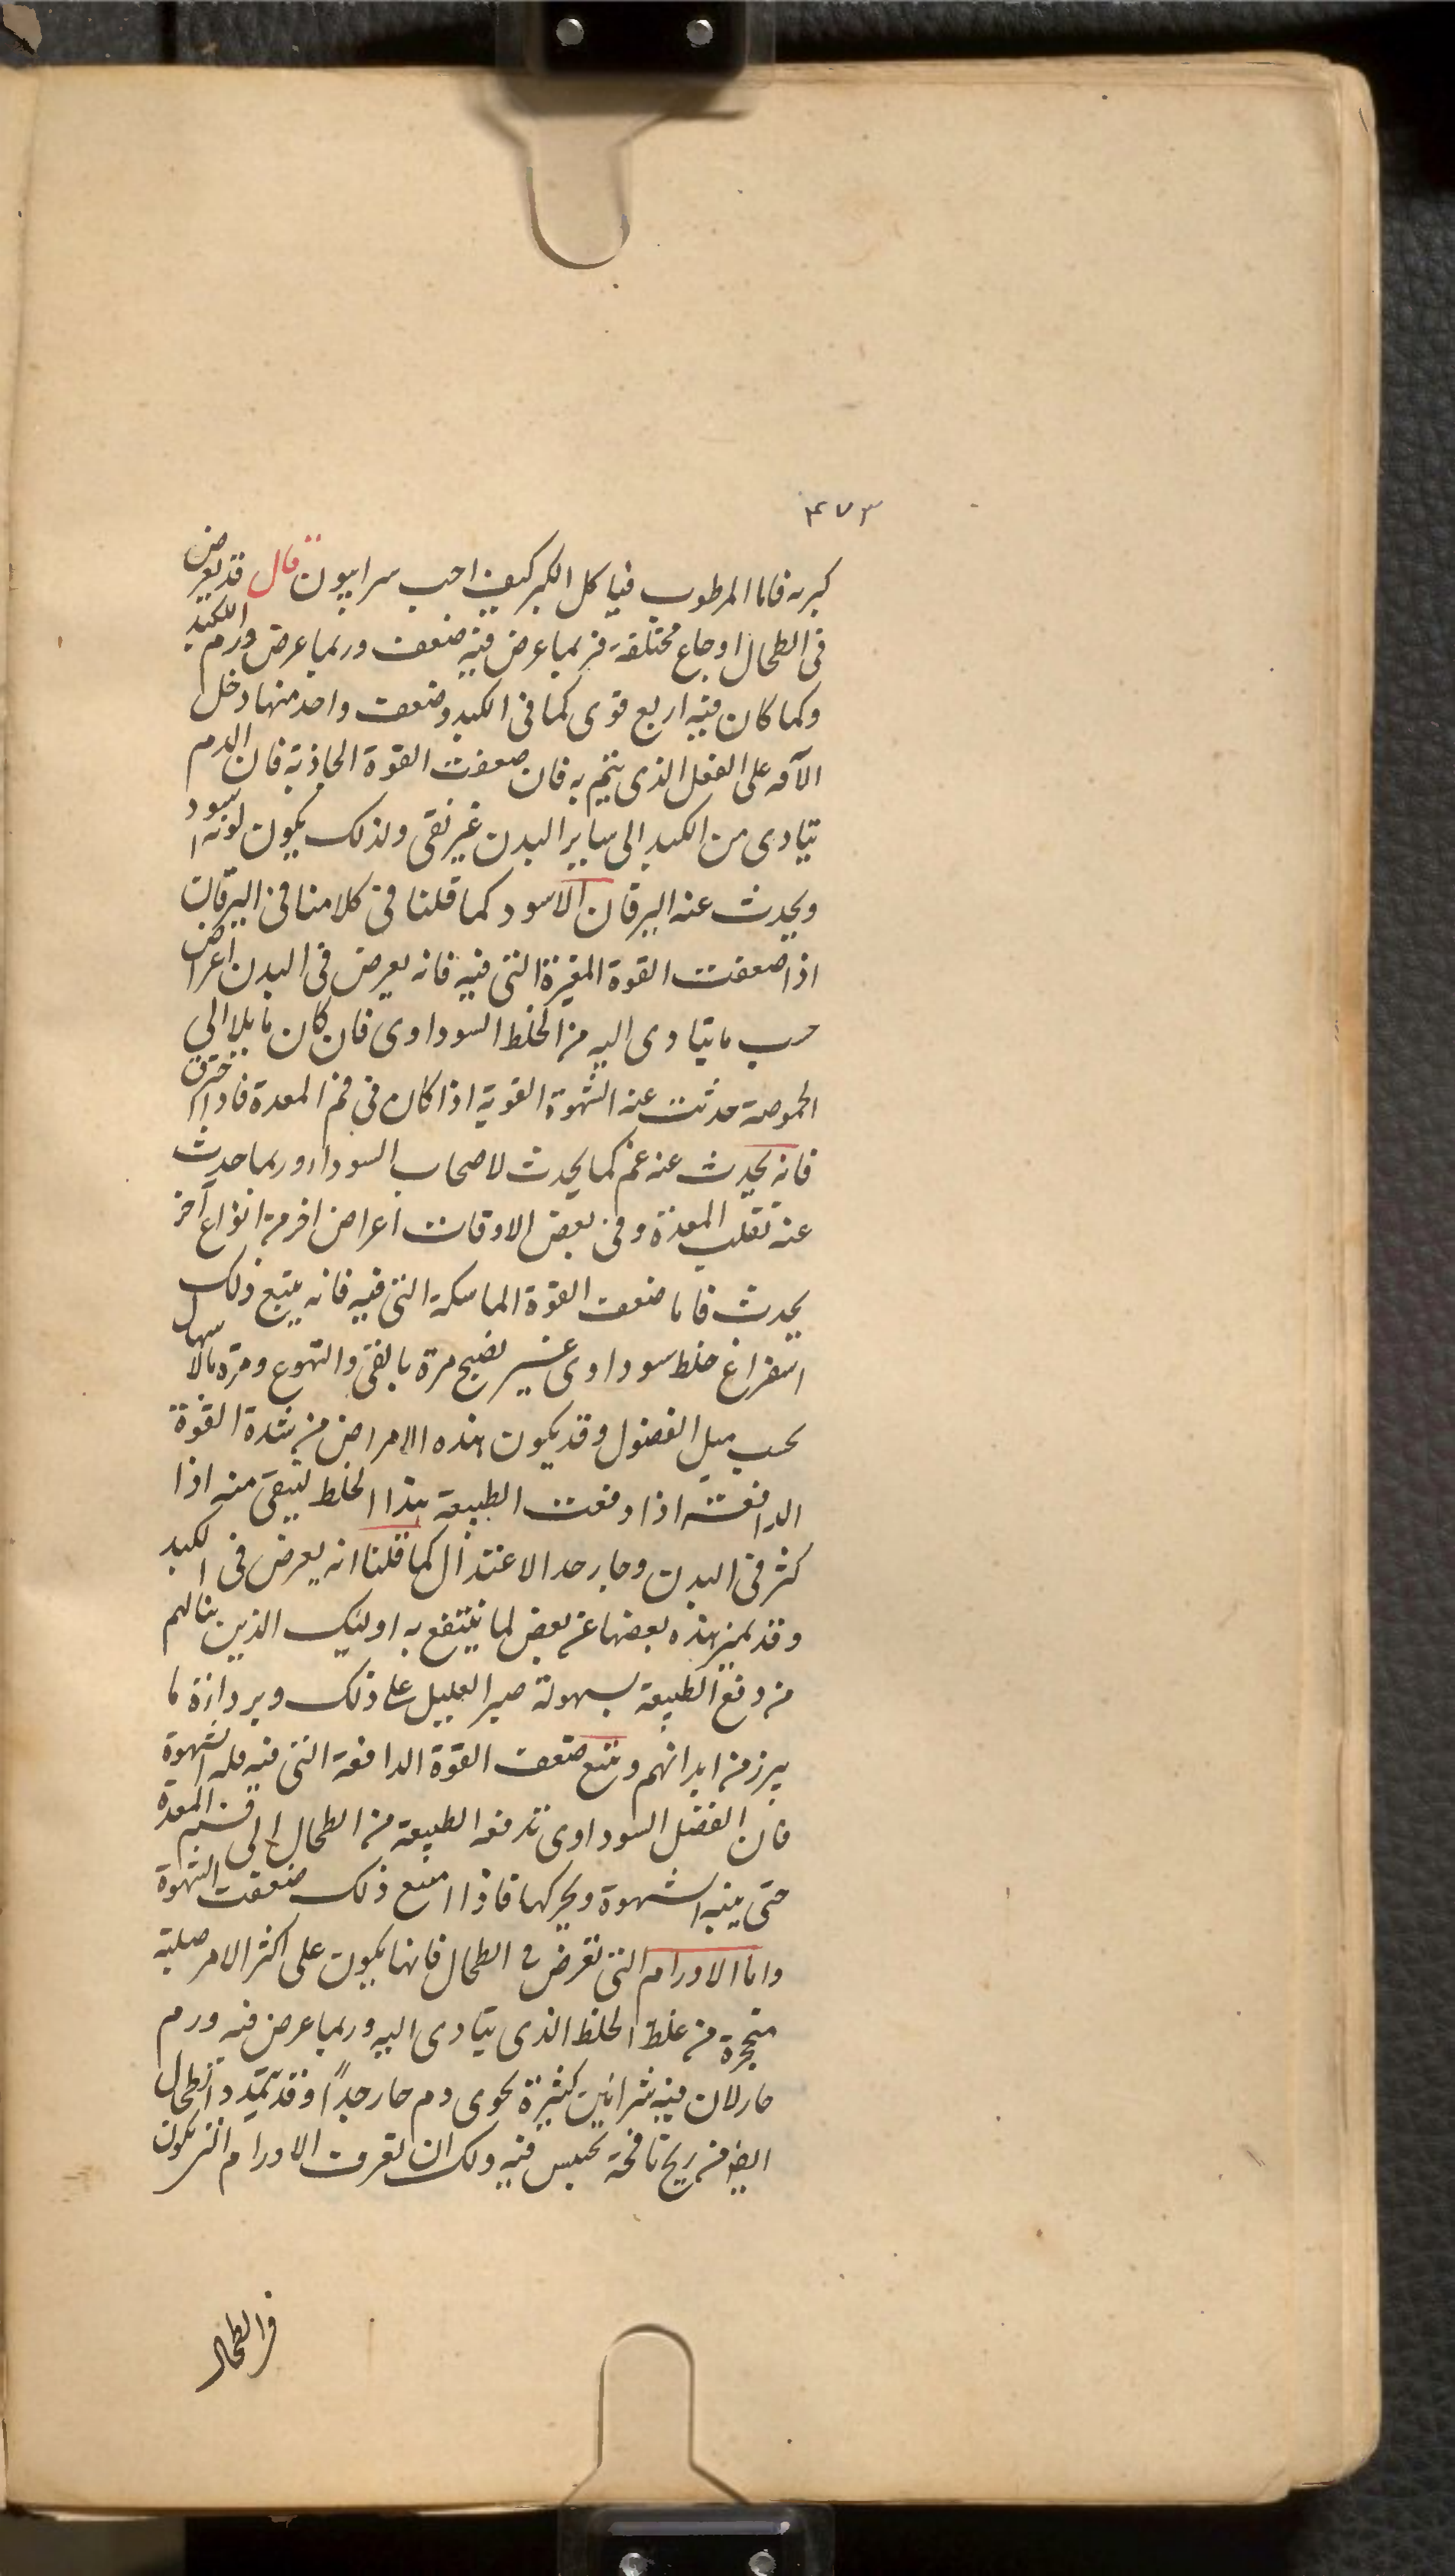 ٤٧٣
كبريه فاما المرطوب فياكل الكبر كيف احب سرابيون قال قد يعرض
فى الطحال اوجاع مختلفة فربما عرض فيه ضعف وربما عرض ورم الكبد
وكما كان فيه اربع قوى كما فى الكبد وضعف واحد منها دخل
الآفه على الفعل الذى يتم به فان ضعفت القوة الجاذبة فان الدم
يتادى من الكبد الى ساير البدن غير نقى ولذلك يكون لونه اسود
ويحدث عنه اليرقان الاسود كما قلنا فى كلامنا فى اليرقان
اذا ضعفت القوة المغيرة التى فيه فانه يعرض فى البدن اعراض
حسب ما يتادى اليه من الخلط السوداوى فان كان مايلا الى
الحموضة حدثت عنه الشهوة القوية اذا كان فى فم المعدة فاذا احترق
فانه يحدث عنه غم كما يحدث لاصحاب السوداء وربما حدث
عنه تقلب المعدة وفى بعض الاوقات اعراض اخر من انواع آخر
يحدث فاما ضعف القوة الماسكة التى فيه فانه يتبع ذلك
استفراغ خلط سوداوى غير نضيج مرة بالقئ والتهوع ومرة بالاسهال
بحسب ميل الفضول وقد يكون هذه الامراض من شدة القوة
الدافعة اذا دفعت الطبيعة هذا الخلط لينقى منه اذا
كثر فى البدن وجاز حد الاعتدال كما قلنا انه يعرض فى الكبد
وقد يميز هذه بعضها عن بعض لما ينتفع به اوليك الذين ينالهم
من دفع الطبيعة بسهولة صبر العليل على ذلك و ما
يبرز من ابدانهم ويتبع ضعف القوة الدافعة التى فيه قله الشهوة
فان الفضل السوداوى تدفعه الطبيعة من الطحال الى فم المعدة
حتى ينبه الشهوة ويحركها فاذا امتنع ذلك ضعفت الشهوة
واما الاورام التى تعرض فى الطحال فانها يكون على اكثر الامر صلبة
متحجرة من غلظ الخلط الذى يتادى اليه وربما عرض فيه ورم
حار لان فيه شرانين كثيرة تحوى دم حار جداً وقد يتمدد الطحال
ايضا من ريح نافخة تحبس فيه ولك ان تعرف الاورام التى يكون
فى الطحال